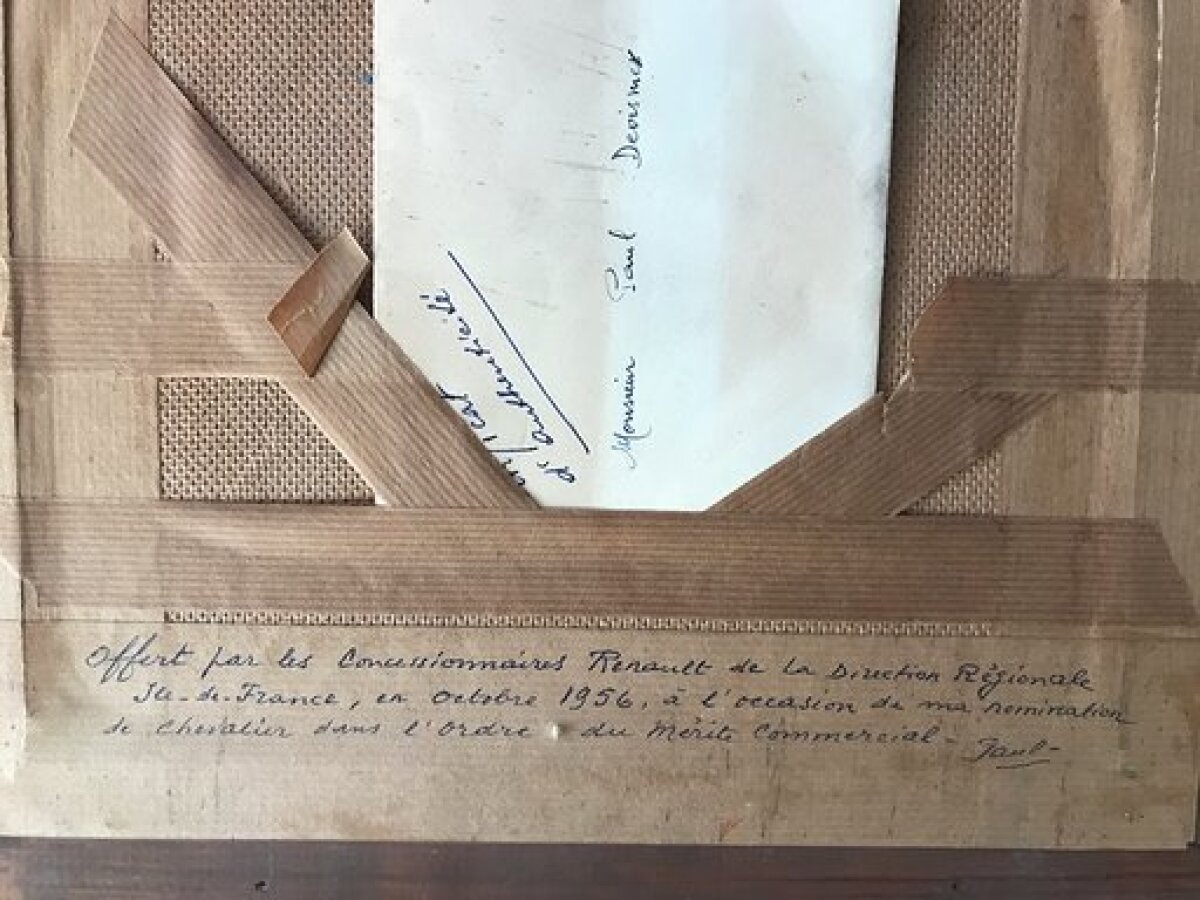 Monsieur Paul Devismes
d'Authenticité
Offert par les Concessionnaires Renault de la Direction Régionale
Ile-de-France, en Octobre 1956, à l'occasion de ma nomination
de Chevalier dans l'Ordre du Mérite Commercial - Paul -